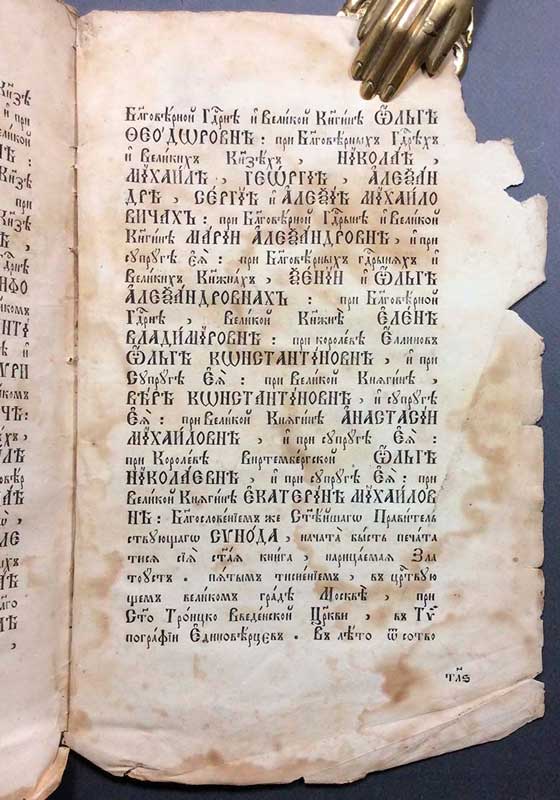 Кн҃зѣ
и҆ при
Великой
Бл҃говѣ́рной Гдⷭ҇рнѣ и҆ Вели́кой Кн҃ги́нѣ Ѻ҆́ЛЬГѢ
ѲЕО́ДѠРОВНѢ : при Бл҃говѣ́рныхъ Гдⷭ҇рѣхъ
и҆ Вели́кихъ Кн҃зѣхъ , НІКОЛА́Ѣ ,
МІХАИ́ЛѢ , ГЕѠ́РГІѢ , А҆ЛЕѮА́Н
ДРѢ , СЕ́РГІѢ и҆ А҆ЛЕѮІ́Ѣ МІХА́ЙЛО
ВИЧАХЪ : при Бл҃говѣ́рной Гдⷭ҇рынѣ и҆ Вели́кой
Кн҃ги́нѣ МАРІ́И А҆ЛЕѮА́НДРОВНѢ , и҆ при
супру́гѣ Е҆Ѧ̀ : при Бл҃говѣ́рныхъ гдⷭ҇рыняхъ и҆
Вели́кихъ Кн҃жна́хъ , ѮЕ́НІИ и҆ Ѻ҆́ЛЬГѢ
А҆ЛЕѮА́НДРОВНАХЪ : при Бл҃говѣ́рной
Гдⷭ҇рнѣ , Вели́кой Кн҃жнѣ̀ Е҆ЛЕ́НѢ
ВЛАДИ́МІРОВНѢ : при короле́вѣ Е҆́ллиновъ
Ѻ҆́ЛЬГѢ КѠНСТАНТІ́НОВНѢ , и҆ при
Супру́гѣ Е҆Ѧ̀ : при Вели́кой Княги́нѣ ,
ВѢ́РѢ КѠНСТАНТІ́НОВНѢ , и҆ супру́гѣ
Е҆Ѧ̀ : при Вели́кой Княги́нѣ А҆НАСТАСІ́И
МІХА́ЙЛОВНѢ , и҆ при супру́гѣ Е҆Ѧ̀ :
при Короле́вѣ Виртембе́ргской Ѻ҆́ЛЬГѢ
НІКОЛА́ЕВНѢ , и҆ при супру́гѣ Е҆Ѧ̀ : при
Вели́кой Княги́нѣ Е҆КАТЕРІ́НѢ МІХА́ЙЛОВ
НѢ : Бл҃гослове́нїемъ же Ст҃ѣ́йшагѡ Прави́тель
ствующагѡ СѴНО́ДА , начата̀ бы́сть печа́та
тися сїѧ̀ ст҃а́я кни́га , нарица́емая Зла
тоу́стъ . пя́тымъ тисне́нїемъ , въ црⷭ҇твую
щемъ вели́комъ гра́дѣ Москвѣ̀ , при
Ст҃о Тро́ицко Введе́нской Цр҃кви , въ Тѵ
погра́фїи Е҆диновѣ́рцєвъ . Въ лѣ́то ѿ сотво